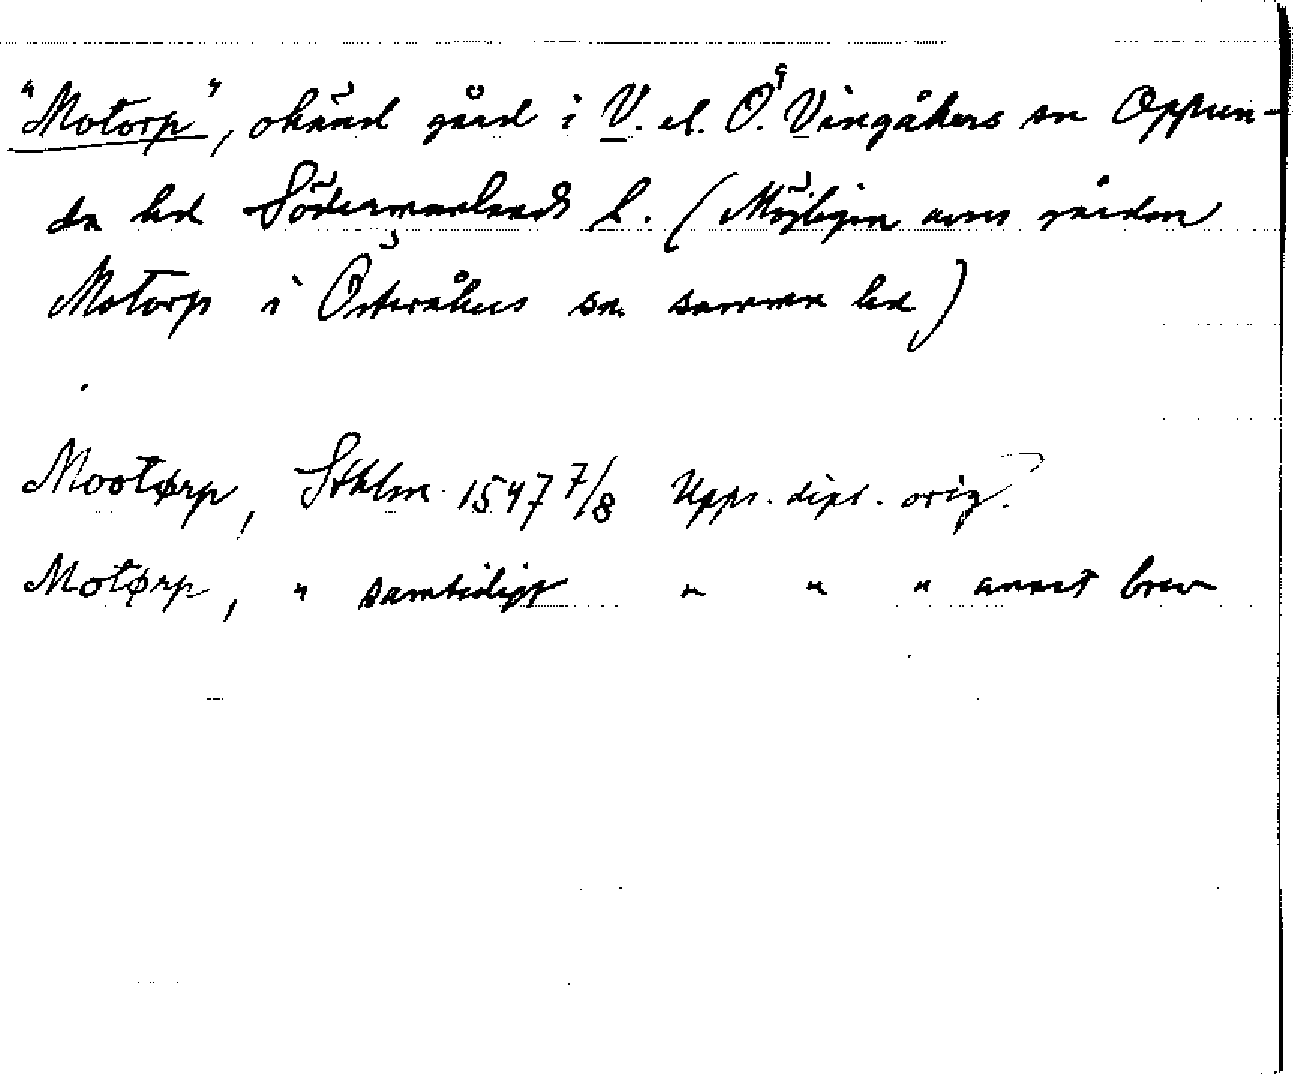 "Motorp", okänd gård i V. el. Ö. Vingåkers sn Oppun-
da hd Södermanlands l. (Möjligen avses gården
Motorp i Österåkers sn samma hd)
Mootørp, Sthlm 1547 7/8 Upps. dipl. orig.
Motørp, " samtidigt " " " annat brev